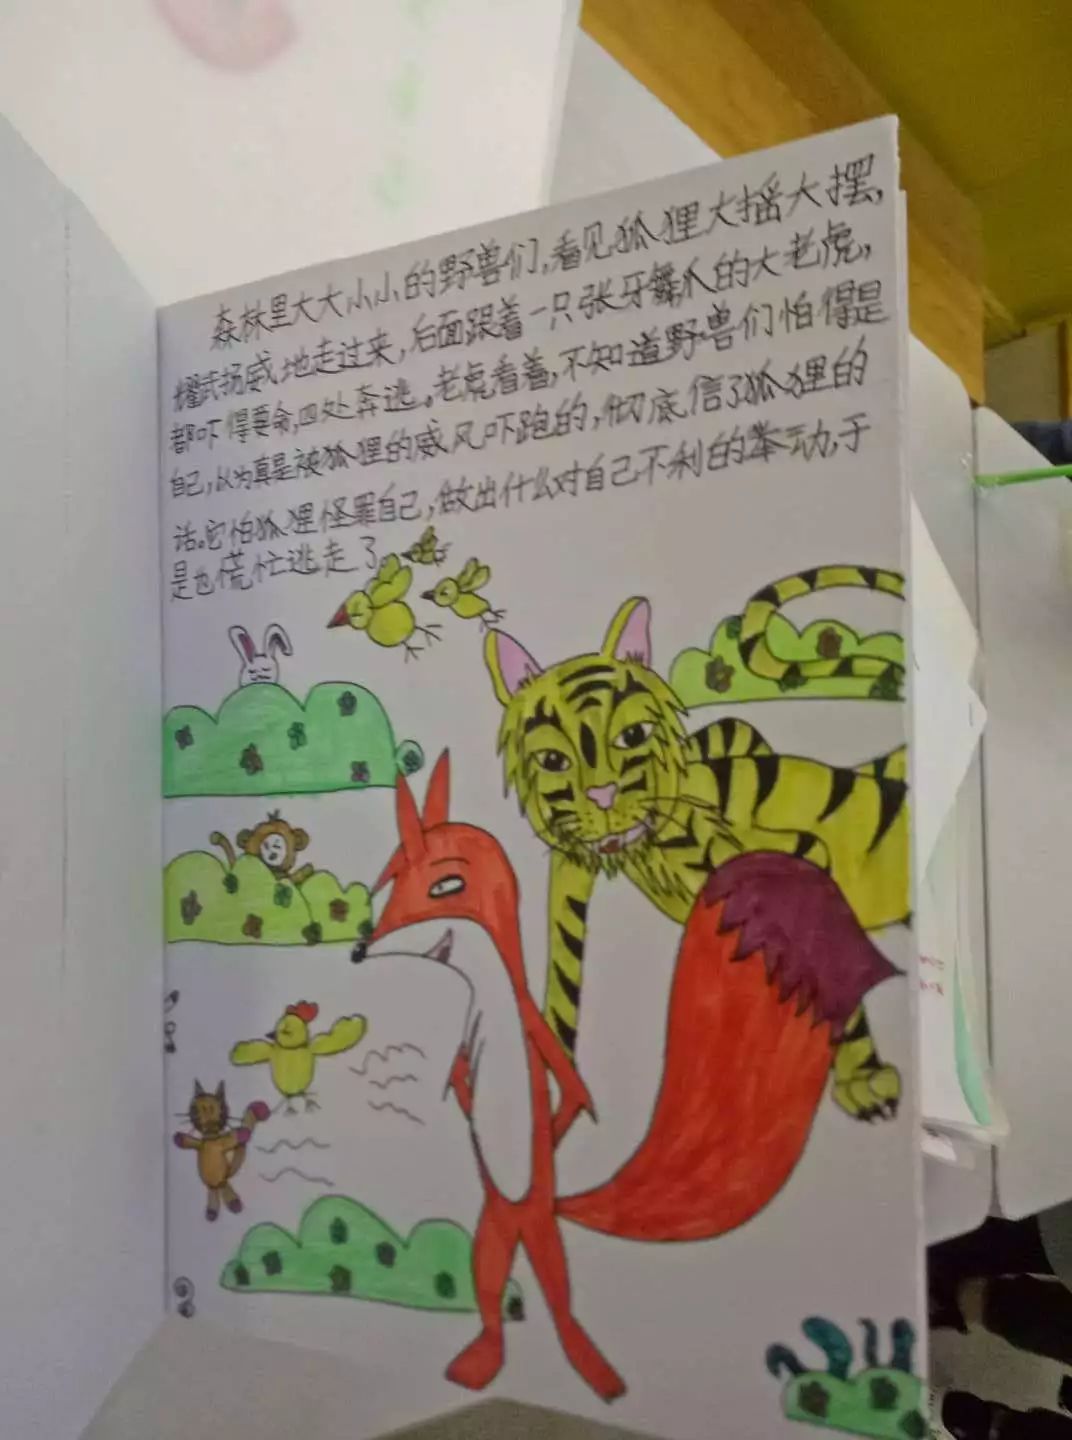 森林里大大小小的野兽们,看见狐狸大摇大摆,
耀武扬威地走过来,后面跟着一只张牙舞爪的大老虎,
都吓得要命,四处奔逃。老虎看着,不知道野兽们怕得是
自己,以为真是被狐狸的威风吓跑的,彻底信了狐狸的
话。它怕狐狸怪罪自己,做出什么对自己不利的举动,于
是也慌忙逃走了。